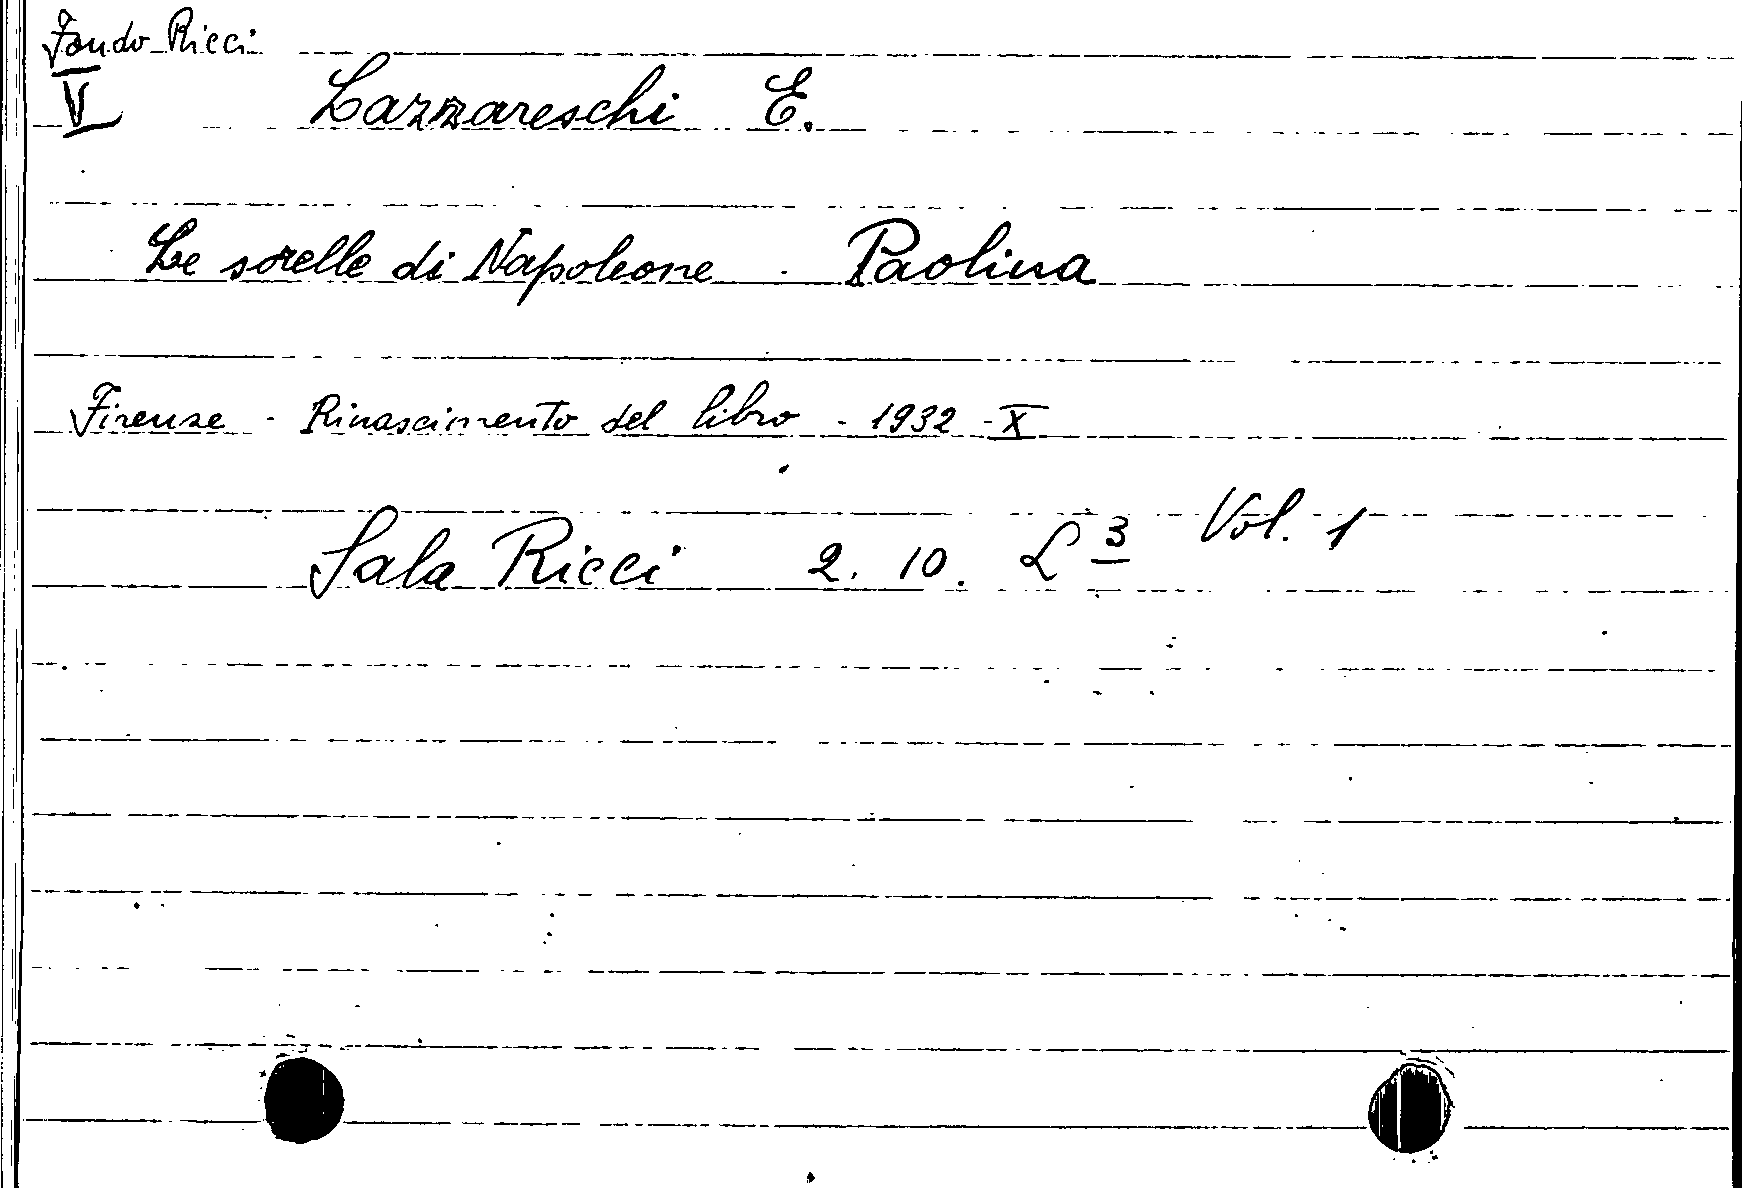 Fondo Ricci
V Lazzareschi E.
Le sorelle di Napoleone - Paolina
Firenze - Rinascimento del libro - 1932 - X
Sala Ricci 2. 10. L 3 Vol. 1